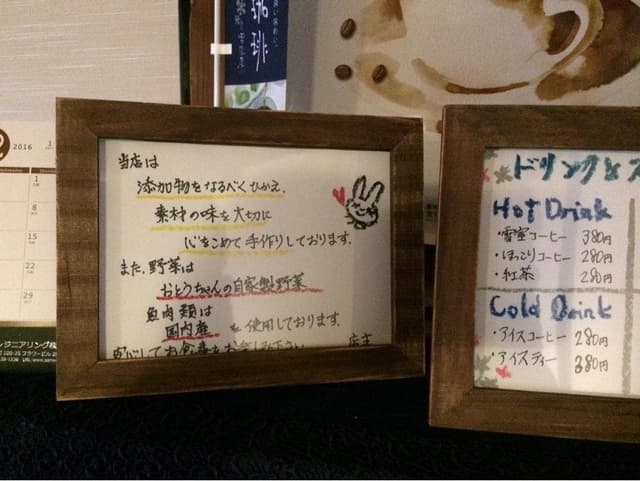 当店は
添加物をなるべくひかえ、
素材の味を大切に
心をこめて手作りしております。
また、野菜は
おとうちゃんの自家製野菜
魚肉類は
国内産を使用しております。
安心してお食事をお楽しみ下さい
店主
ドリンク&ス
Hot Drink
・雪室コーヒー 380円
・ほっこりコーヒー 280円
・紅茶 280円
Cold Drink
・アイスコーヒー 280円
・アイスティー 380円
珈琲
2016
1
8
15
22
29